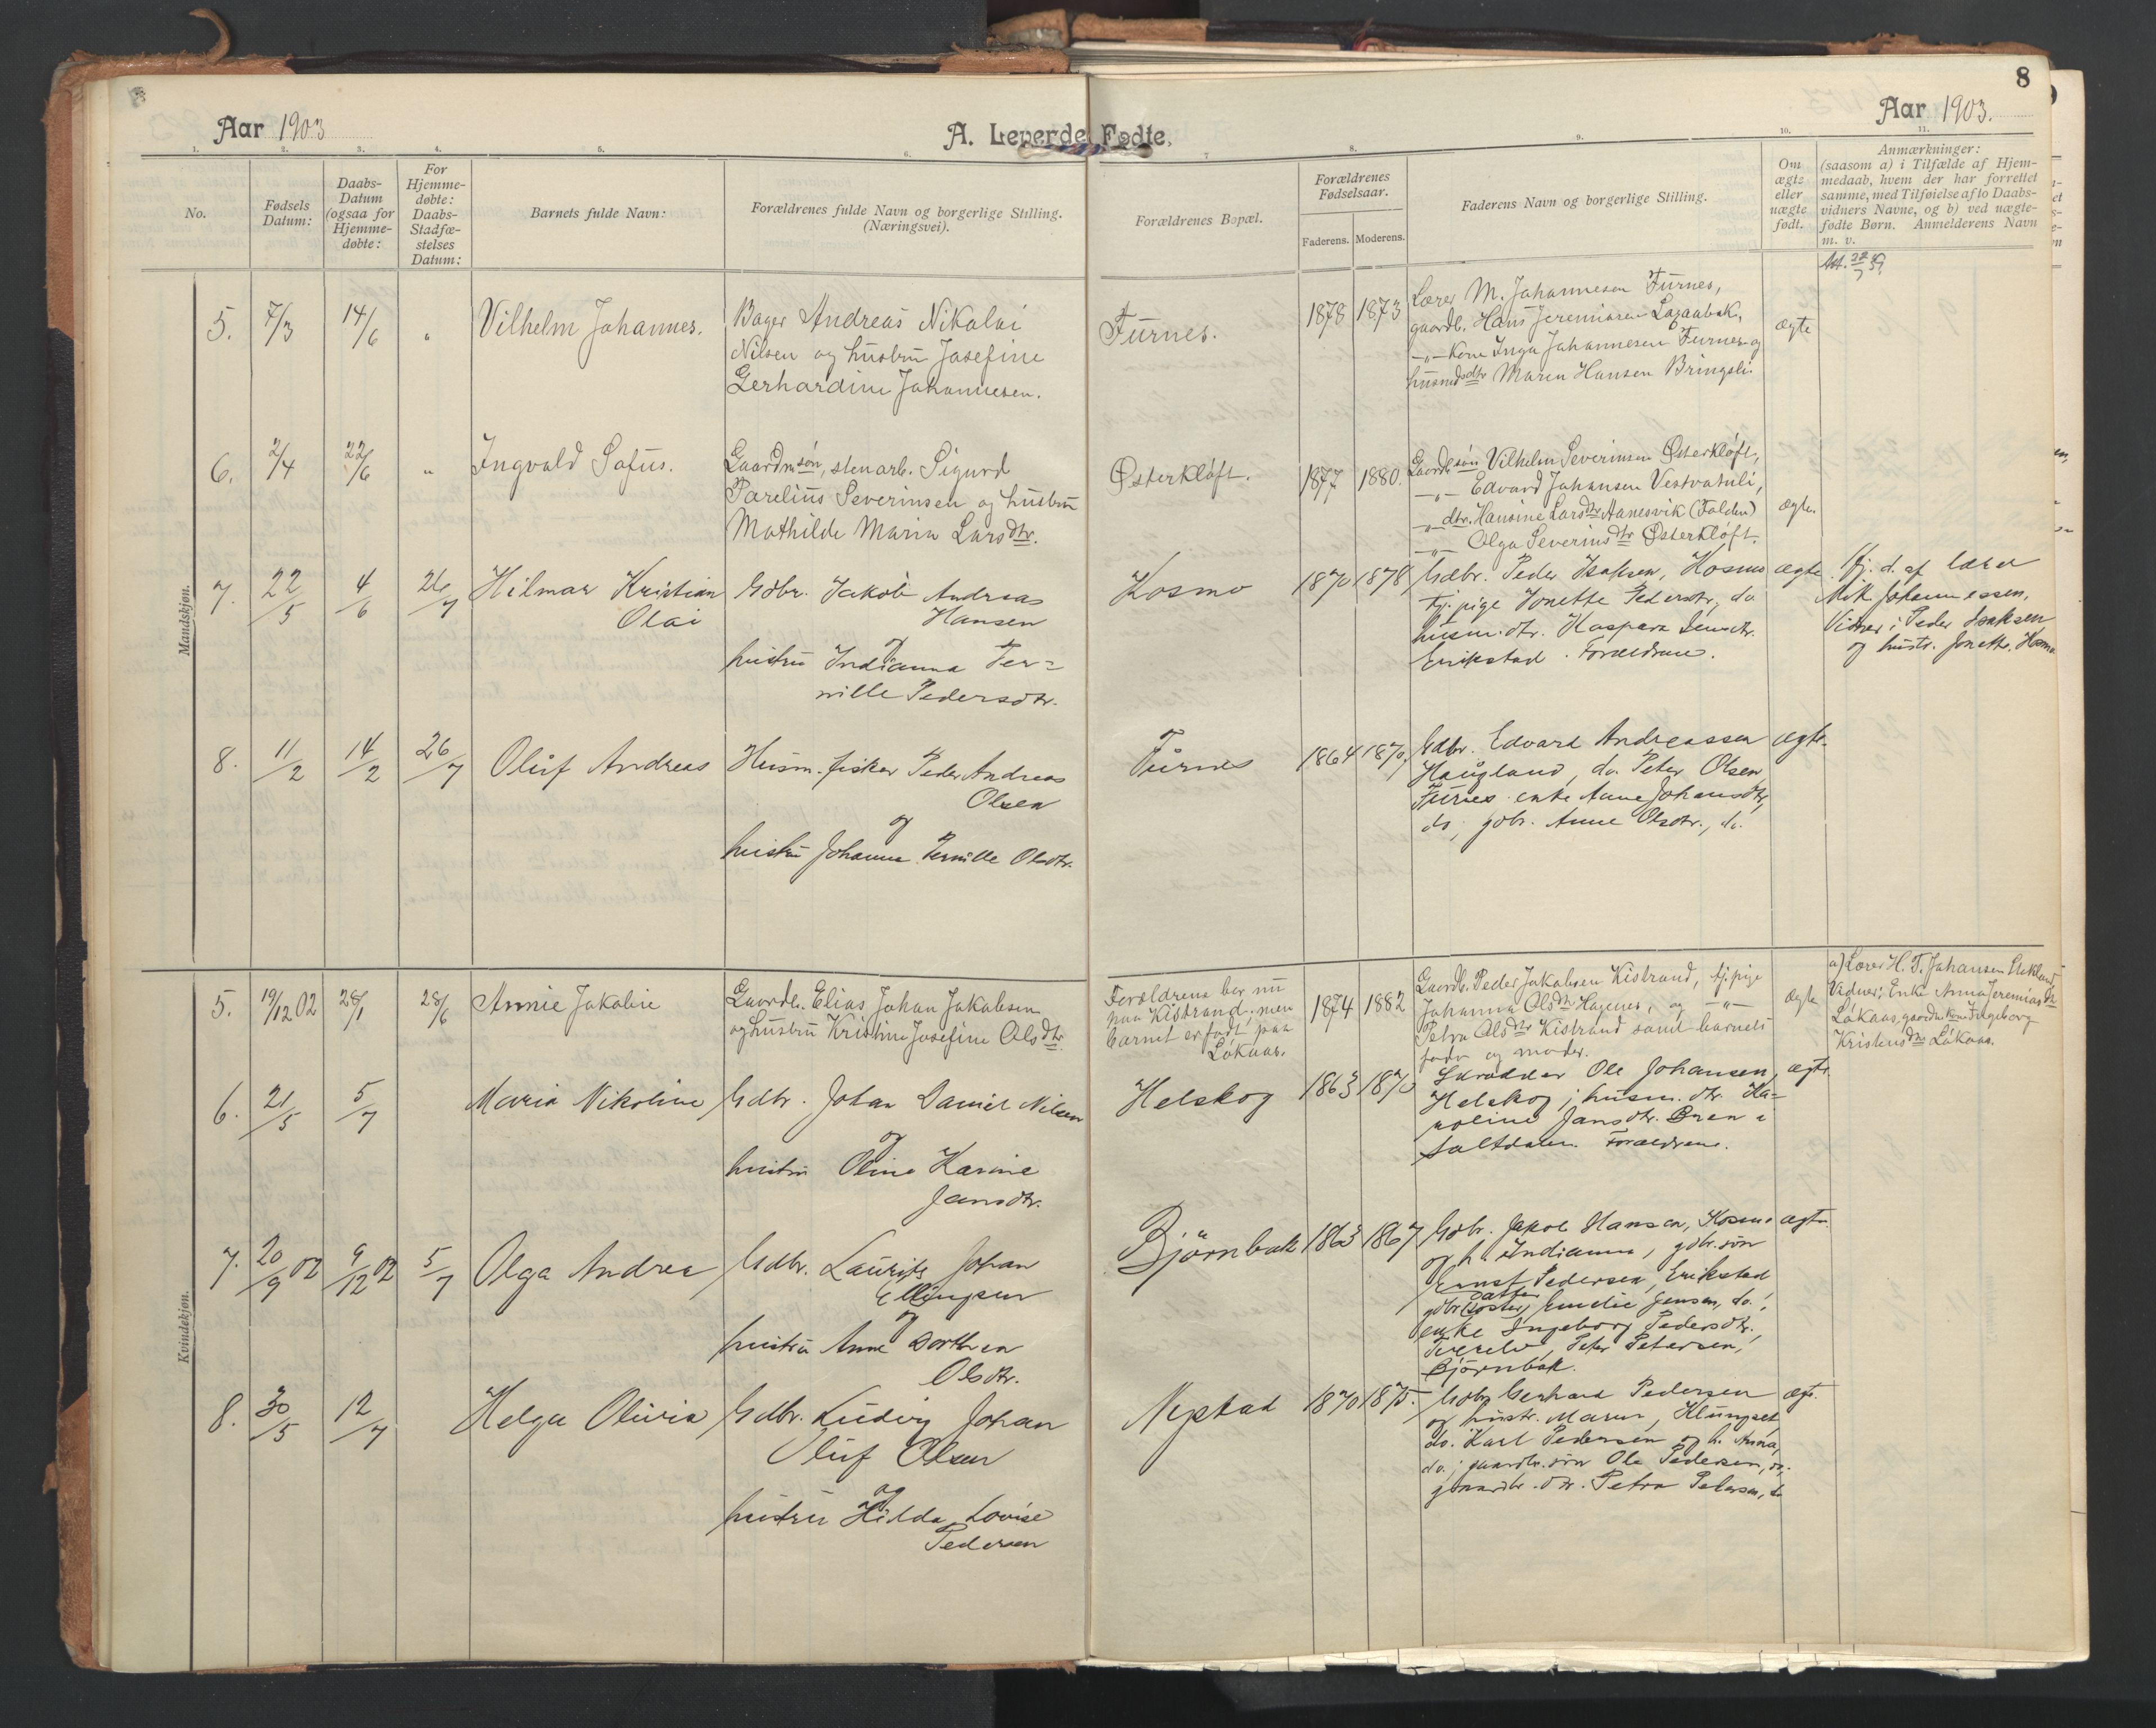 8
Aar 1903
A. Levende Fødte.
Aar 1903.
1. 2. 3. 4. 5. 6. 7. 8. 9. 10. 11.
No.
Fødsels
Datum:
Daabs-
Datum
(ogsaa for
Hjemme-
døbte:
For
Hjemme-
døbte:
Daabs-
Stadfæ-
stelses
Datum:
Barnets fulde Navn:
Forældrenes fulde Navn og borgerlige Stilling.
(Næringsvei).
Forældrenes Bopæl.
Forældrenes
Fødselsaar.
Faderens. Moderens.
Faderens Navn og borgerlige Stilling.
Om
ægte
eller
uægte
født.
Anmærkninger:
(saasom a) i Tilfælde af Hjem-
medaab, hvem der har forrettet
samme, med Tilføielse af to Daabs-
vidners Navne, og b) ved uægte-
fødte Børn. Anmelderens Navn
m. v.
Mandskjøn.
5. 7/3 14/6 " Vilhelm Johannes.
Bager Andreas Nikolai
Nilsen og hustru Josefine
Gerhardine Johannesen.
Furnes.
1878 1873
Lærer M. Johannesen Furnes,
gaardb. Hans Jeremiasen Lagaabak,
-"- kone Inga Johannesen Furnes og
husmdsdtr Maren Hansen Bringsli
ægte
6. 2/4 22/6 " Ingvald Sofus.
Gaardmsøn, stenarb. Sigurd
Parelius Severinsen og hustru
Mathilde Maria Larsdtr.
Østerkløft.
1877 1880.
Gaardbsøn Vilhelm Severinsen Østerkløft,
-"- Edvard Johansen Vestvatnli,
-"- dtr. Hansine Larsdtr Hanesvik (Folden)
-"- Olga Severinsdtr Østerkløft.
ægte.
7. 22/5 4/6 26/7 Hilmar Kristian
Olai
Gdbr. Jakob Andreas
Hansen
og
hustru Indianna Per=
nille Pedersdtr.
Kosmo
1870 1878
Gdbr. Peder Isaksen, Kosmo
tj. pige Jonette Pedersdtr, do
husm. dtr. Kaspara Jensdtr.
Erikstad. Forældrene.
ægte.
Hj. d. af lærer
Mik. Johannessen,
Vidner: Peder Isaksen
og hustr. Jonette, Kosmo
8. 11/2 14/2 26/7 Oluf Andreas
Husm. fisker Peder Andreas
Olsen
og
hustru Johanna Pernille Olsdtr.
Furnes
1864 1870,
Gdbr. Edvard Andreassen
Haugland, do. Peter Olsen,
Furnes. enke Anne Johansdtr,
do, gdbr. Anne Olsdtr., do.
ægte.
Kvindekjøn.
5. 19/12 02 28/1 28/6 Annie Jakobine
Gaardb. Elias Johan Jakobsen
og hustru Kristine Josefine Olsdtr.
Forældrene bor nu
paa Kistrand, men
barnet er født paa
Løkaas.
1874 1882
Gaardb. Peder Jakobsen Kistrand, tj. pige
Johanna Olsdtr Hagenes, og -"-
Petra Olsdtr Kistrand samt barnets
fader og moder.
ægte
a) Lærer H. T. Johansen
Vidner: Enke Anna Jeremiasdtr
Løkaas, gaardm. kone Ingeborg
Kristensdtr Løkaas.
6. 21/5 5/7 Maria Nikoline
Gdbr. Johan Daniel Nilsen
og
hustru Oline Karine
Jansdtr.
Helskog
1863 1870
Skrædder Ole Johansen,
Helskog; husm. dtr. Ka=
roline Jansdtr. Bren i
Saltdalen. Forældrene.
ægte.
7. 20/9 02 9/12 02 5/7 Olga Andrea
Gdbr. Laurits Johan
Ellingsen
og
hustru Anne Dorthea
Olsdtr.
Bjørnbak
1863 1867
Gdbr. Jakob Hansen, Kosmo
og h. Indianna, gdbr. søn
Ernst Pedersen, Erikstad
datter
gdbr. (søster) Emelie Jensen, do.,
enke Ingeborg Pedersdtr.,
Tverelv, Peter Petersen,
Bjørnbak.
ægte.
8. 30/5 12/7 Helga Olivia
Gdbr. Ludvig Johan
Oluf Olsen
og
hustru Hilda Lovise
Pedersen
Nystad
1870 1875.
Gdbr. Gerhard Pedersen
og hustr. Maren, Klungset,
do. Karl Pedersen og h. Anna,
do.; gaardbr. søn Ole Pedersen, do;
gaardbr. dtr. Petra Petersen, do
ægte.